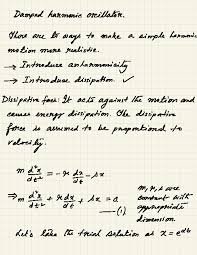 Damped harmonic oscillator.
There are two ways to make a simple harmonic
motion more realistic.
→ Introduce anharmonicity
→ Introduce dissipation. ✓
Dissipative force: It acts against the motion and
causes energy dissipation. The dissipative
force is assumed to be proportional to
velocity.
m d²x/dt² = - r dx/dt - sx
⇒ m d²x/dt² + r dx/dt + sx = 0 —(1)
m, r, s are
constant with
appropriate
dimension.
Let's take the trial solution as x = e^αt